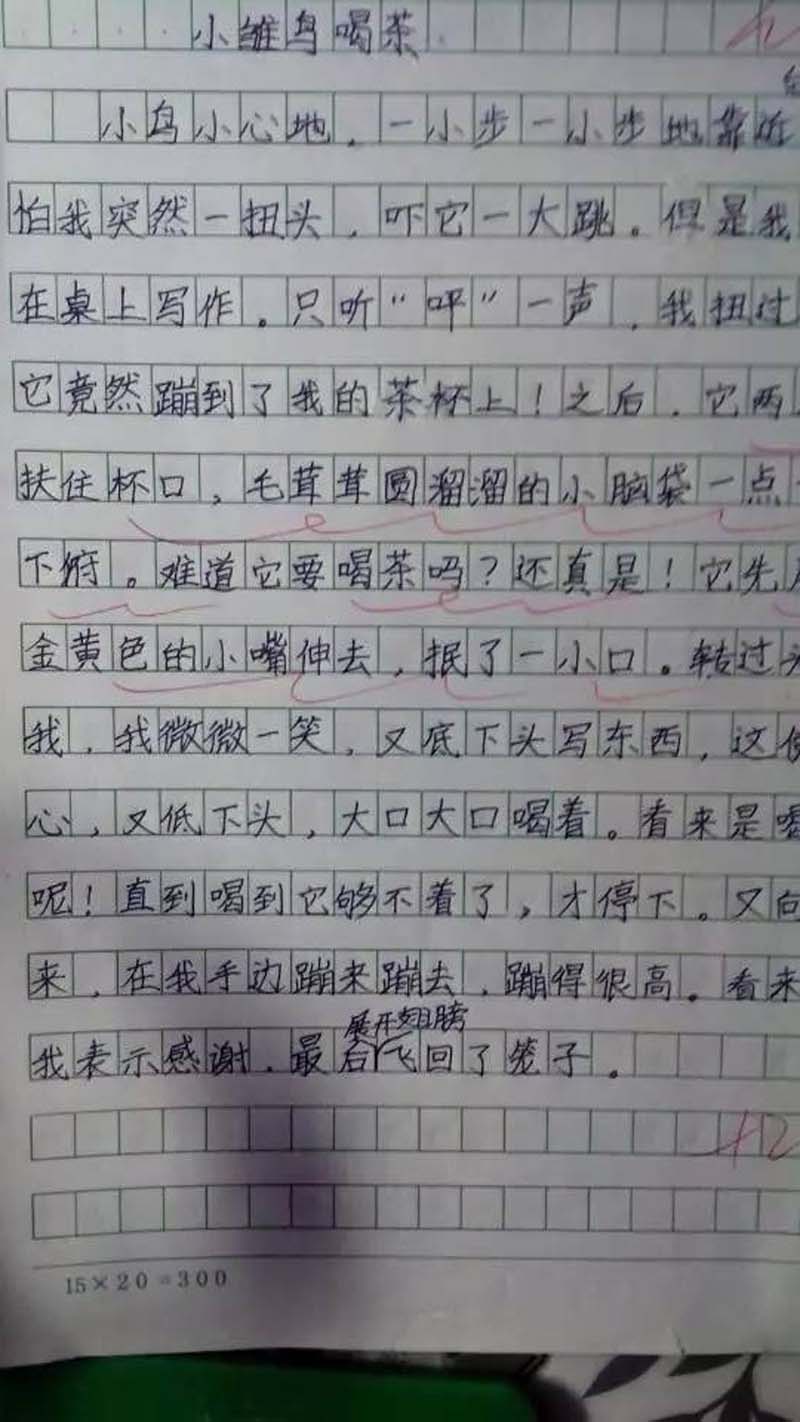 小雏鸟喝茶
小鸟小心地，一小步一小步地靠近
怕我突然一扭头，吓它一大跳。但是我
在桌上写作。只听“呯”一声，我扭过
它竟然蹦到了我的茶杯上！之后，它两
扶住杯口，毛茸茸圆溜溜的小脑袋一点
下俯。难道它要喝茶吗？还真是！它先
金黄色的小嘴伸去，抿了一小口。转过头
我，我微微一笑，又底下头写东西，这使
心，又低下头，大口大口喝着。看来是喝
呢！直到喝到它够不着了，才停下。又向
来，在我手边蹦来蹦去，蹦得很高。看来
展开翅膀
我表示感谢，最后飞回了笼子。
15×20=300